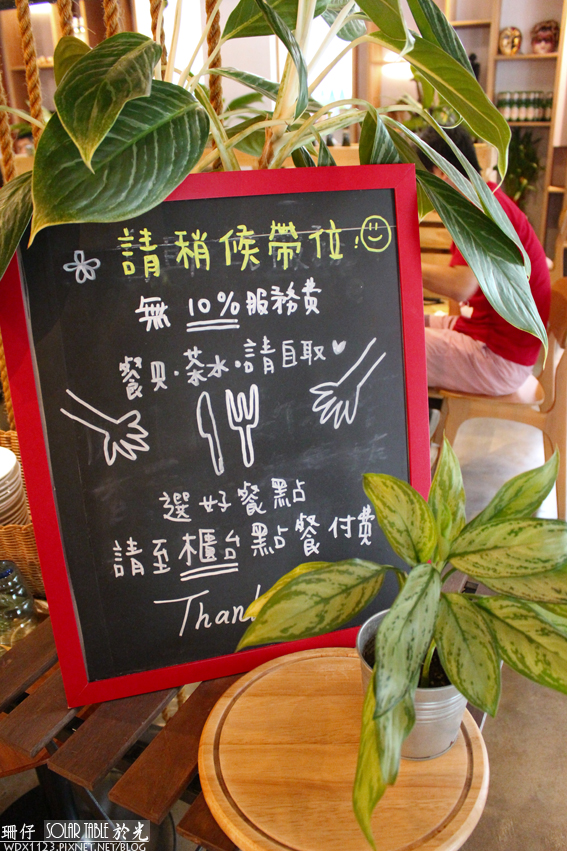 請稍候帶位！
無 10% 服務費
餐具．茶水．請自取♥
選好餐點
請至櫃台點餐付費
Thank
珊仔 SOLAR TABLE 於光
WDX1123.PIXNET.NET/BLOG